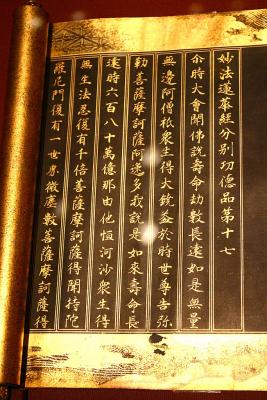 妙法蓮華經分別功德品第十七
尒時大會聞佛說壽命劫數長遠如是無量
無邊阿僧祇衆生得大饒益於時世尊告弥
勒菩薩摩訶薩阿逸多我說是如來壽命長
遠時六百八十萬億那由他恒河沙衆生得
無生法忍復有千倍菩薩摩訶薩得聞持陀
羅尼門復有一世界微塵數菩薩摩訶薩得